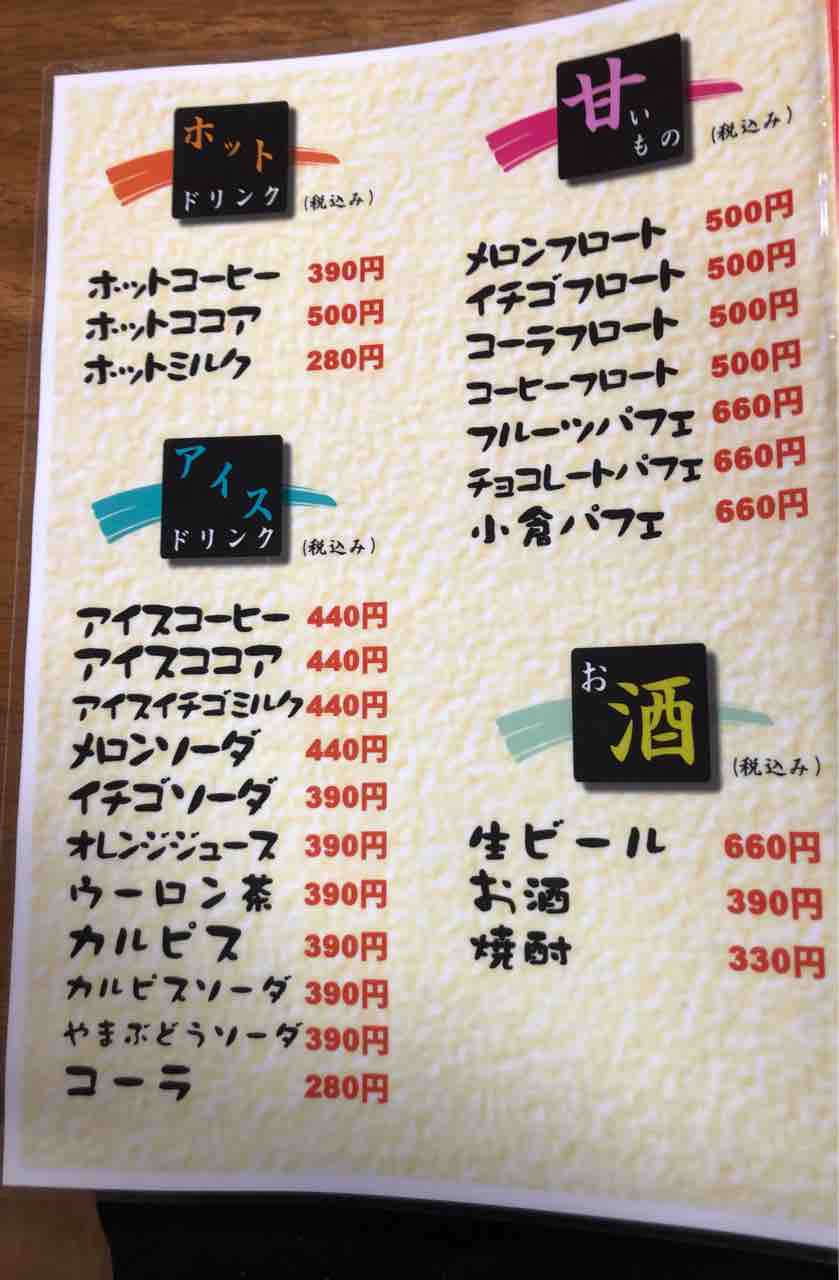 ホット
ドリンク
(税込み)
ホットコーヒー 390円
ホットココア 500円
ホットミルク 280円
アイス
ドリンク
(税込み)
アイスコーヒー 440円
アイスココア 440円
アイスイチゴミルク 440円
メロンソーダ 440円
イチゴソーダ 390円
オレンジジュース 390円
ウーロン茶 390円
カルピス 390円
カルピスソーダ 390円
やまぶどうソーダ 390円
コーラ 280円
甘いもの
(税込み)
メロンフロート 500円
イチゴフロート 500円
コーラフロート 500円
コーヒーフロート 500円
フルーツパフェ 660円
チョコレートパフェ 660円
小倉パフェ 660円
お酒
(税込み)
生ビール 660円
お酒 390円
焼酎 330円